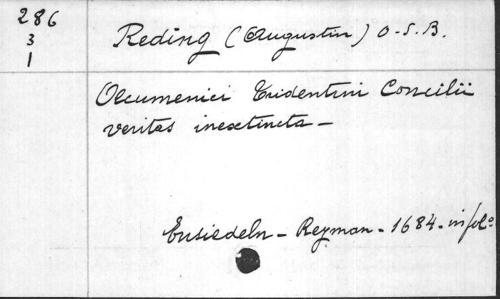 286
3
1
Reding (Augustin) O.S.B.
Oecumenici Tridentini Concilii
veritas inextincta -
Ensiedeln - Reyman - 1684 - in folº